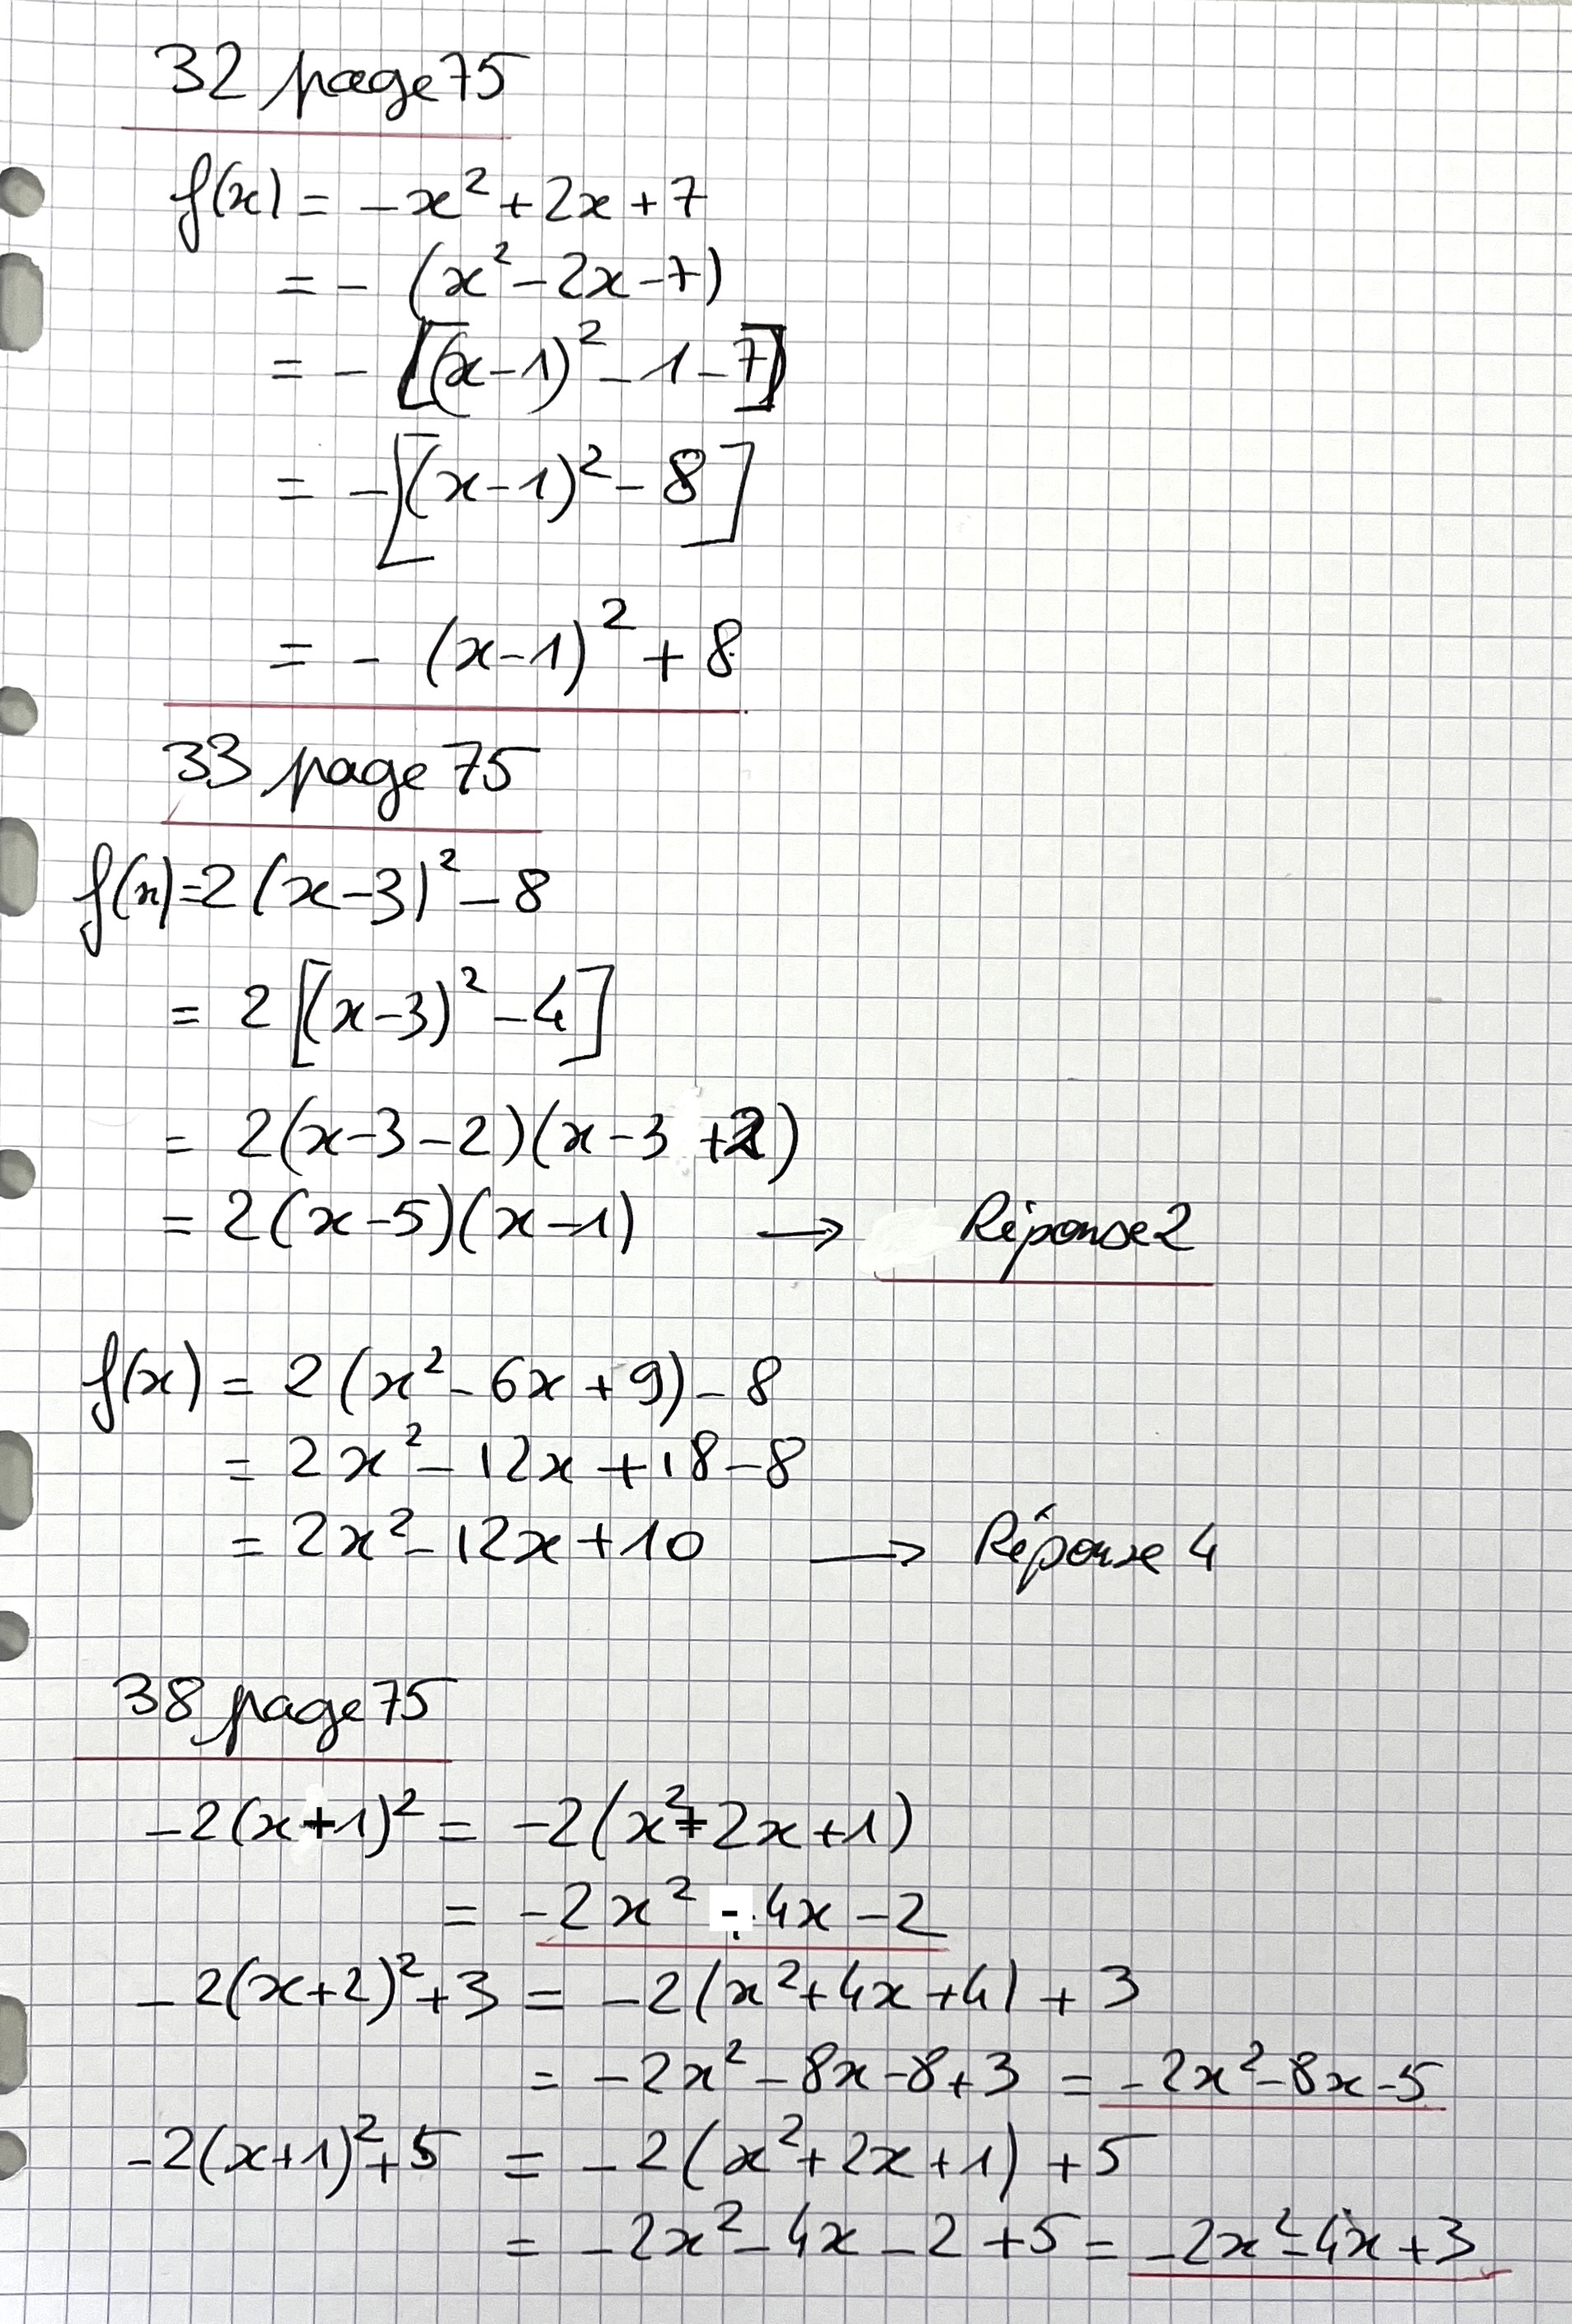 32 page 75
f(x) = -x² + 2x + 7
= - (x² - 2x - 7)
= - [(x-1)² - 1 - 7]
= - [(x-1)² - 8]
= - (x-1)² + 8
33 page 75
f(x) = 2(x-3)² - 8
= 2[(x-3)² - 4]
= 2(x-3-2)(x-3+2)
= 2(x-5)(x-1) → Réponse 2
f(x) = 2(x² - 6x + 9) - 8
= 2x² - 12x + 18 - 8
= 2x² - 12x + 10 → Réponse 4
38 page 75
-2(x+1)² = -2(x²+2x+1)
= -2x² - 4x - 2
-2(x+2)² + 3 = -2(x²+4x+4) + 3
= -2x² - 8x - 8 + 3 = -2x² - 8x - 5
-2(x+1)² + 5 = -2(x²+2x+1) + 5
= -2x² - 4x - 2 + 5 = -2x² - 4x + 3